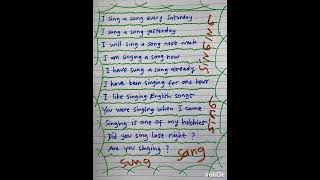 I sing a song every Saturday
I sang a song yesterday
I will sing a song next week
I am singing a song now
I have sung a song already
I have been singing for one hour
I like singing English songs
You were singing when I came
Singing is one of my hobbies
Did you sing last night ?
Are you singing ?
SINGING
SING
Sung
Sang
InShOt